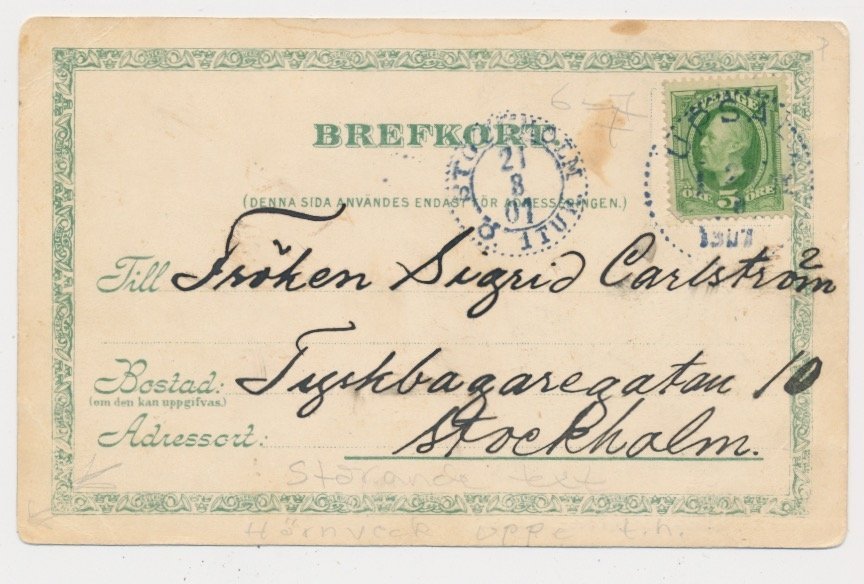 6-7
BREFKORT
(DENNA SIDA ANVÄNDES ENDAST FÖR ADRESSERINGEN.)
STOCKHOLM
21
8
01
1 TUR
SVERIGE
ÖRE 5 ÖRE
UPSALA
Till Fröken Sigrid Carlström
Bostad: Tyskbagaregatan 10
(om den kan uppgifvas.)
Adressort: Stockholm.
Störande text
Hörnveck uppe t.h.